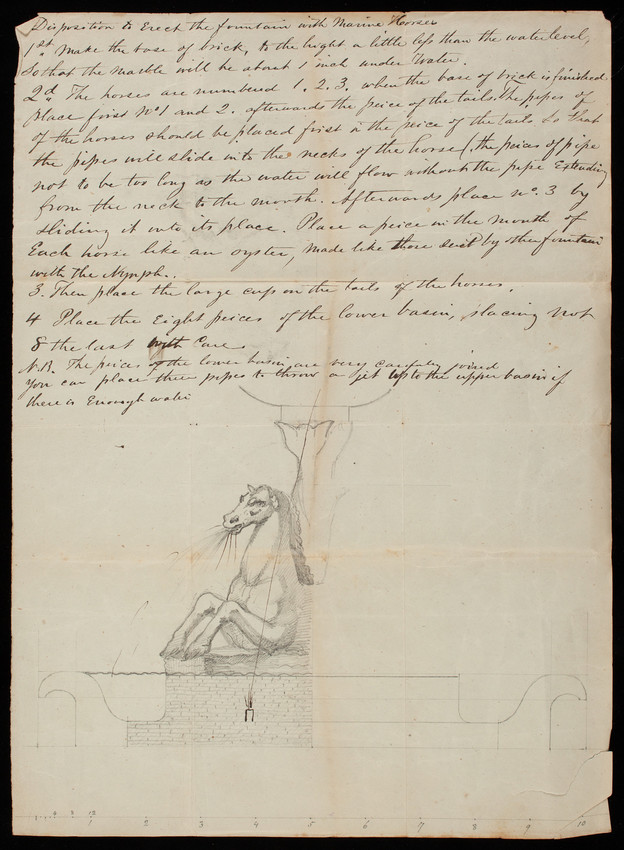 Disposition to Erect the fountain with Marine Horses
1st Make the base of brick, to the hight a little less than the water level,
So that the marble will be about 1 inch under water.
2d. The horses are numbered 1. 2. 3. when the base of brick is finished
place first No 1 and 2. afterwards the peice of the tails. The pipes of
of the horses should be placed first in the peice of the tails so that
the pipes will slide into the necks of the horses (. the peices of pipe
not to be too long as the water will flow without the pipe Extending
from the neck to the mouth. Afterwards place no. 3 by
sliding it into its place. Place a peice in the mouth of
Each horse like an oyster, made like those sent by the fountain
with the Nymph.
3. Then place the large cup on the tails of the horses.
4 Place the Eight peices of the lower basin, placing no 7
8 the last with Care
N.B. The peices of the lower basin are very carefully joined
You can place three pipes to throw a jet up to the upper basin if
there is Enough water
6 3 12
1 2 3 4 5 6 7 8 9 10